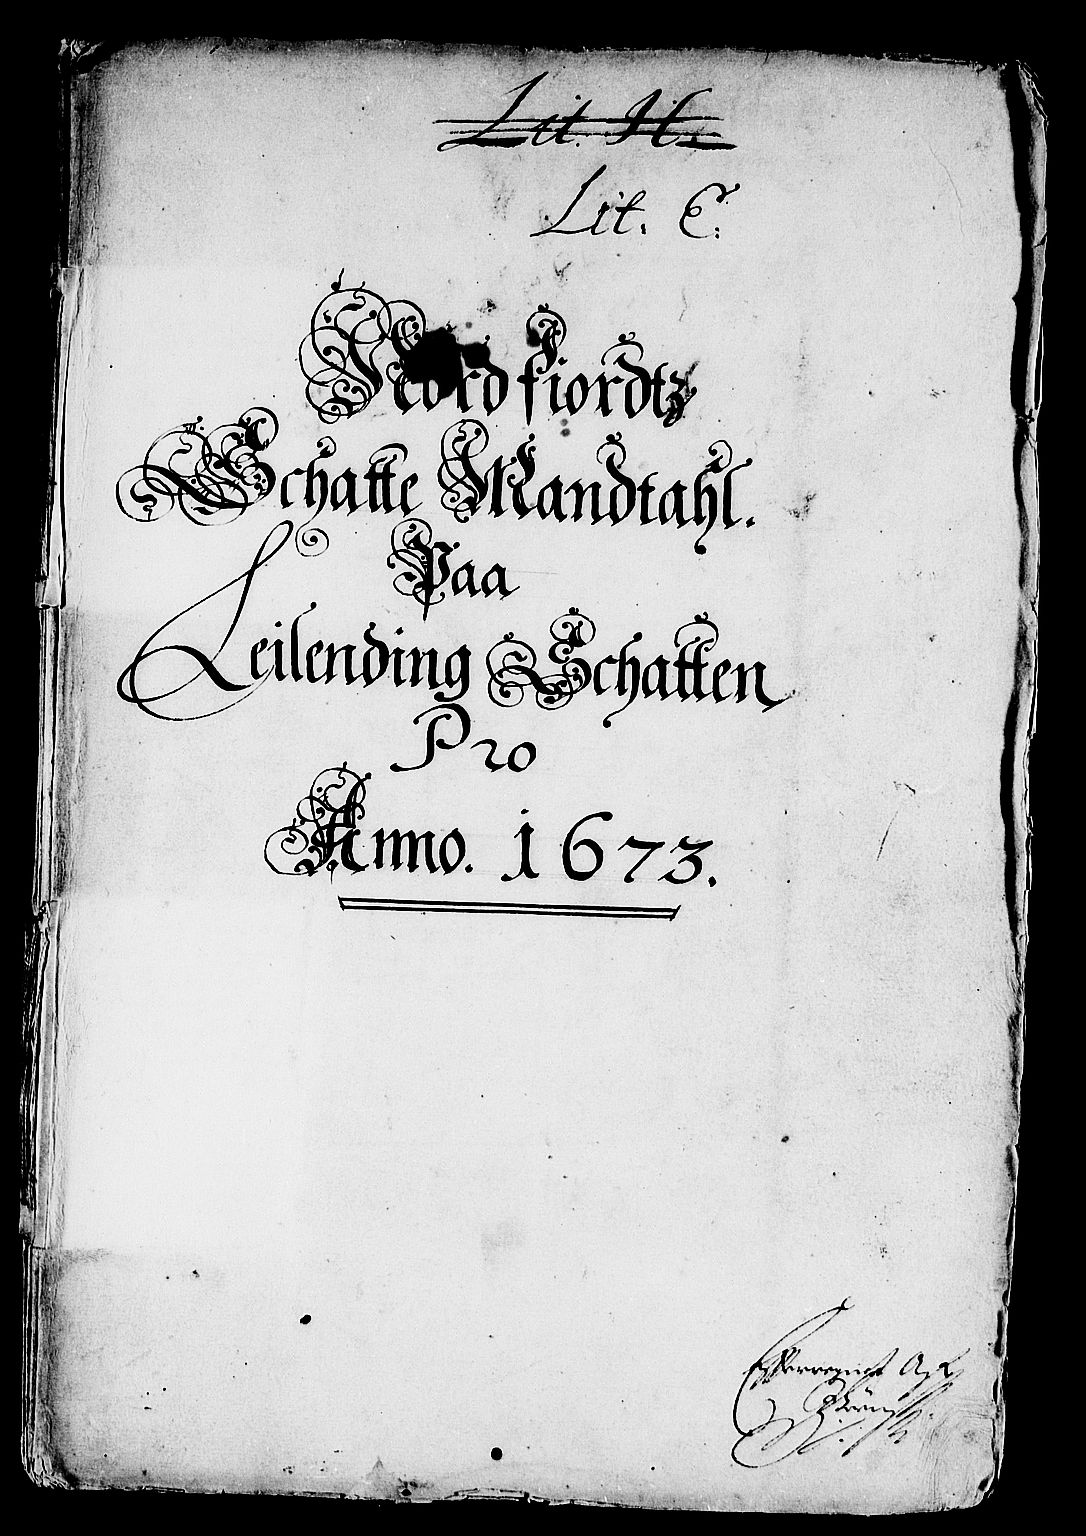 Lit. H.
Lit. C.
Nordfiordtz
Schatte Mandtahl.
Paa
Leilending Schatten
Pro
Anno. 1673.
Efterregnet Af